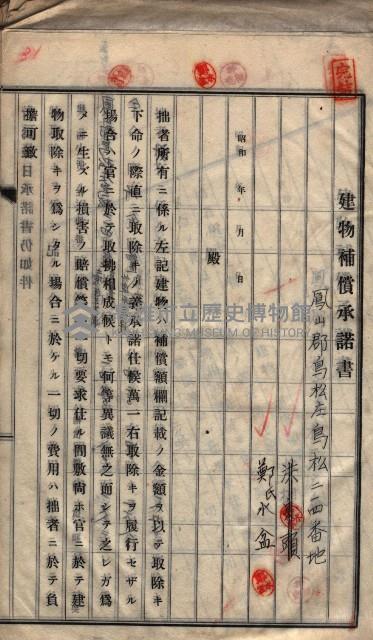 建物補償承諾書
鳳山郡鳥松庄鳥松二一四番地
頭
鄭氏水盆
昭和 年 月 日
殿
拙者所有ニ係ル左記建物ハ補償額欄記載ノ金額ヲ以テ取除キ
下命ノ際直ニ取除キノ義承諾仕候萬一右取除キヲ履行セザル
場合ハ官ニ於テ取拂相成候トモ何等異議無之而シテ之レガ為
メニ生ズル損害ノ賠償等一切要求仕ル間敷尚ホ官ニ於テ建
物取除キヲ為シタル場合ニ於ケル一切ノ費用ハ拙者ニ於テ負
擔可致 日承諾書仍如件
高雄市立歷史博物館
KAOHSIUNG MUSEUM OF HISTORY